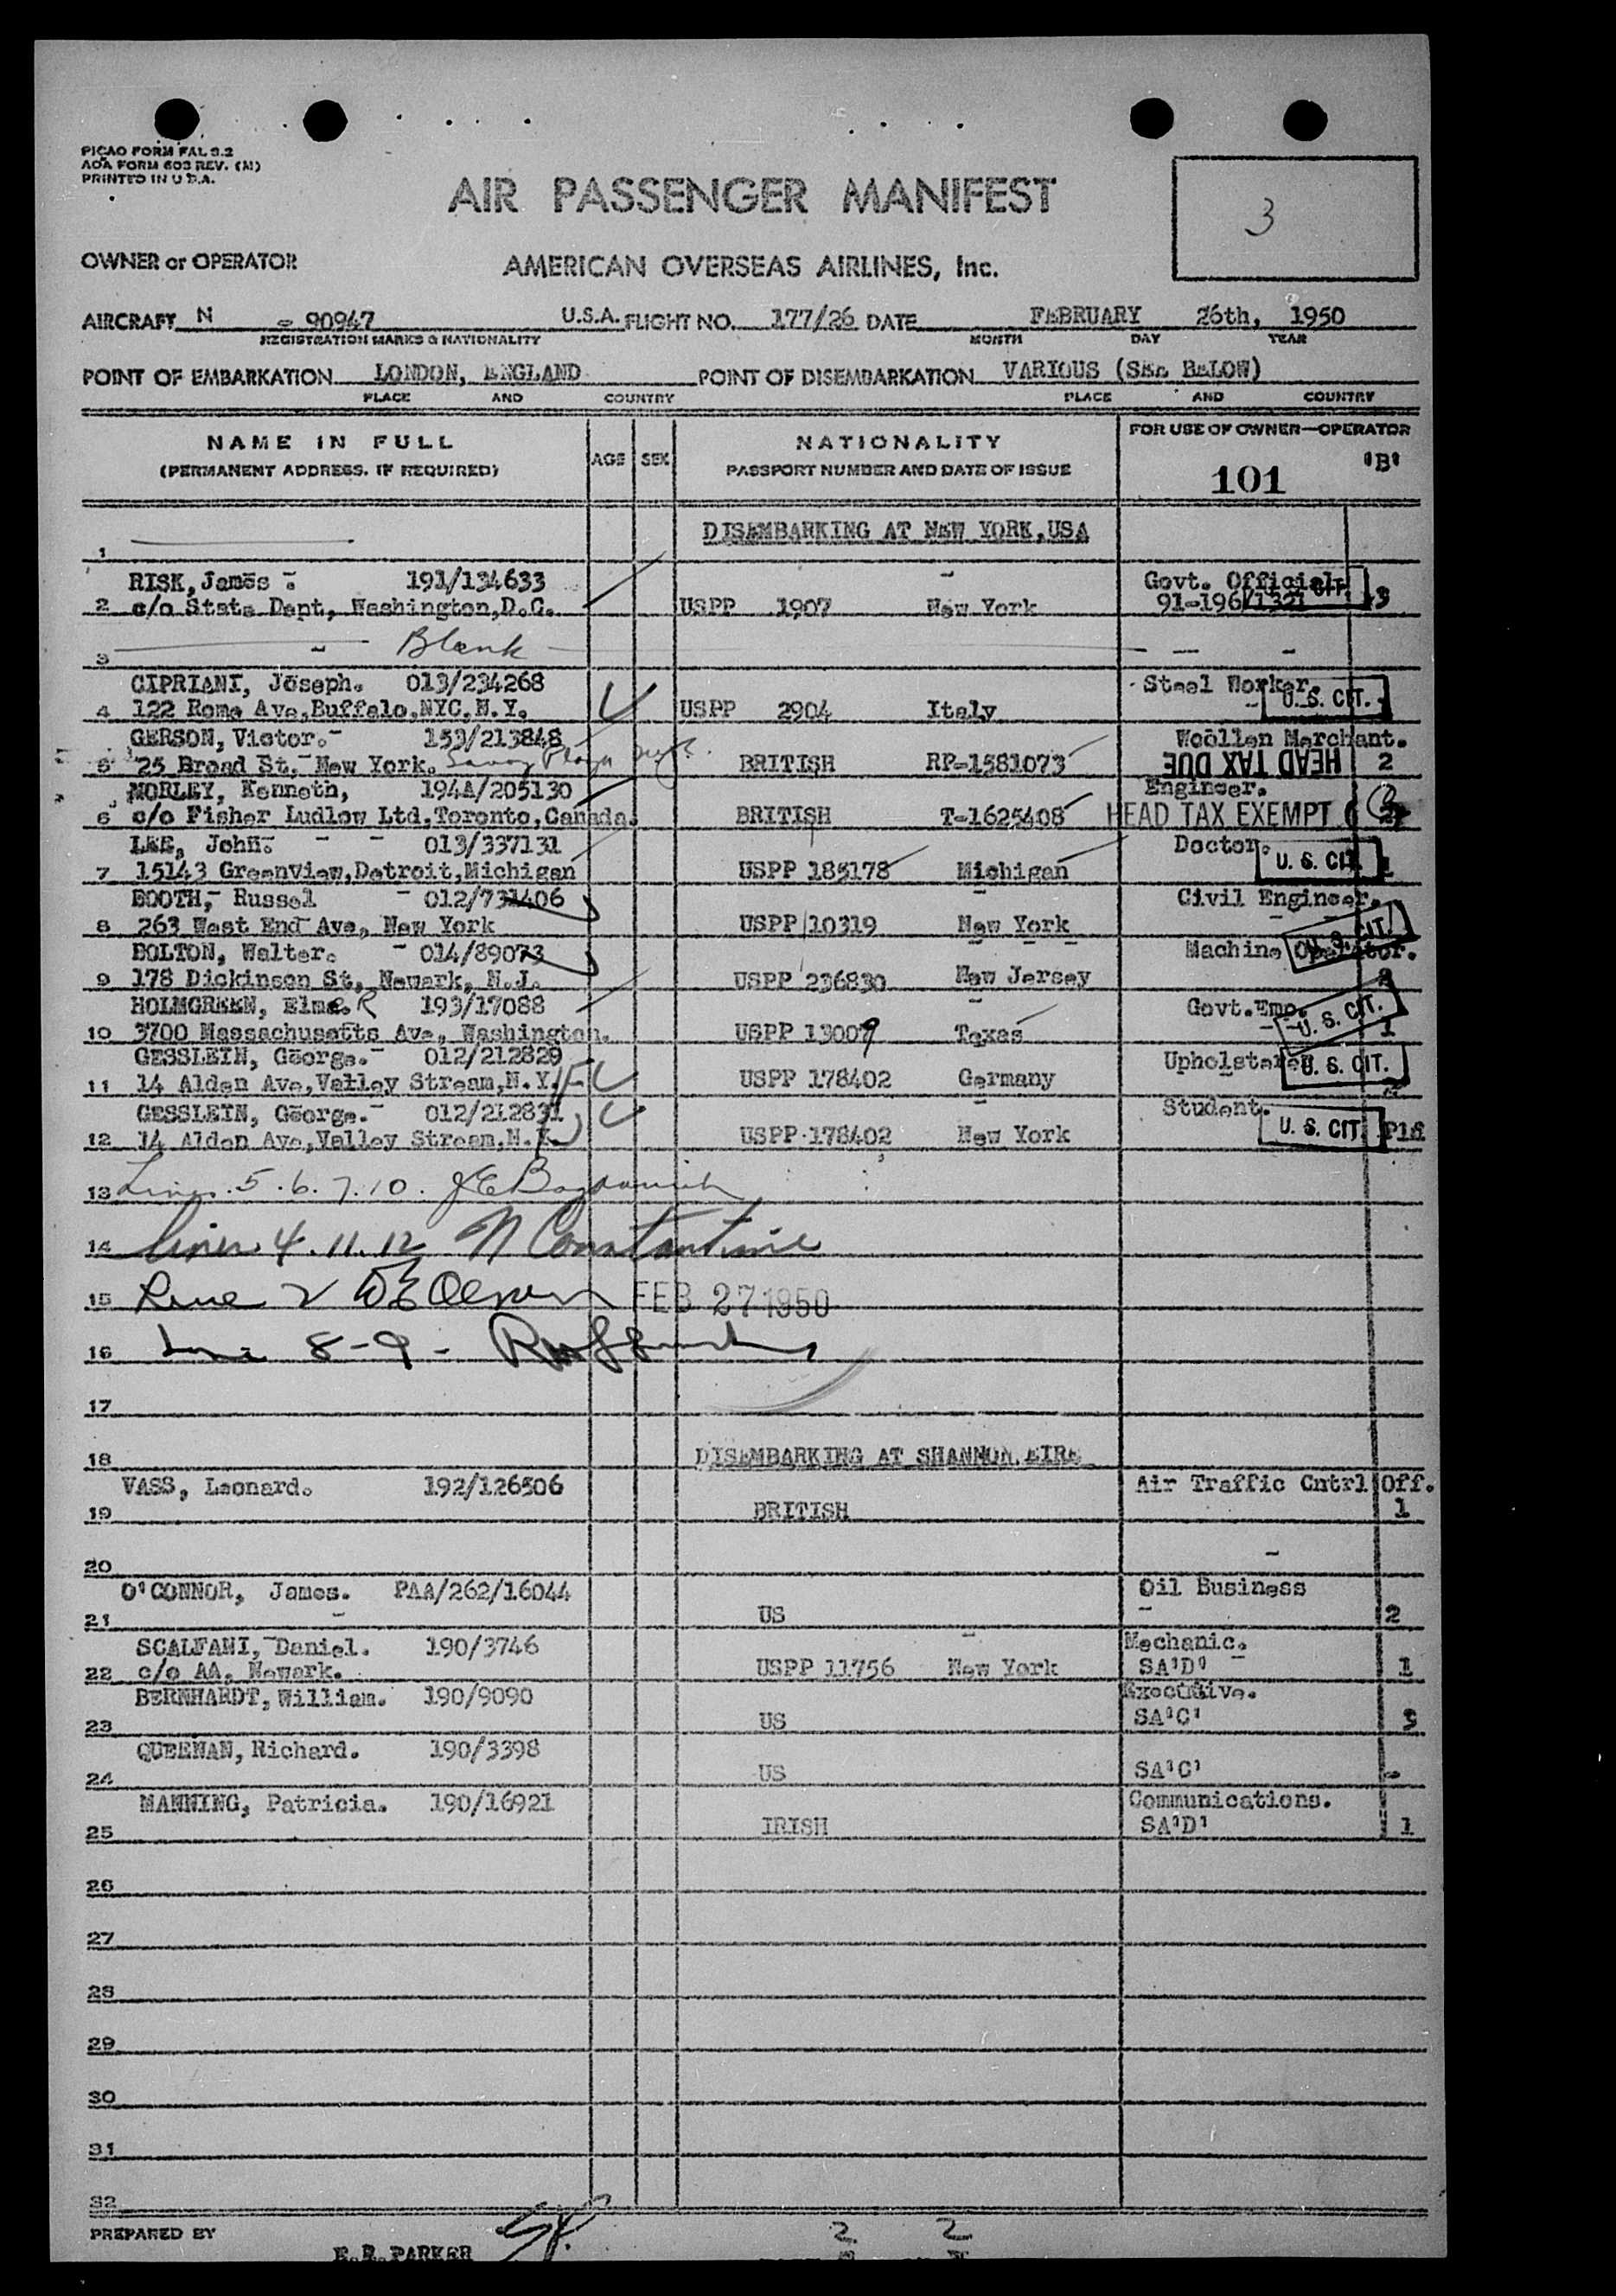 PICAO FORM FAL 9.2
AOA FORM 603 REV. (M)
PRINTED IN U.S.A.
AIR PASSENGER MANIFEST
3
OWNER or OPERATOR AMERICAN OVERSEAS AIRLINES, Inc.
AIRCRAFT N - 90947 U.S.A. FLIGHT NO. 177/26 DATE FEBRUARY 26th, 1950
REGISTRATION MARKS & NATIONALITY MONTH DAY YEAR
POINT OF EMBARKATION LONDON, ENGLAND POINT OF DISEMBARKATION VARIOUS (SEE BELOW)
PLACE AND COUNTRY PLACE AND COUNTRY
NAME IN FULL AGE SEX NATIONALITY FOR USE OF OWNER—OPERATOR
(PERMANENT ADDRESS, IF REQUIRED) PASSPORT NUMBER AND DATE OF ISSUE 101 'B'
1 DISEMBARKING AT NEW YORK,USA
RISK, James . 191/134633 Govt. Official.
2 c/o State Dept, Washington,D.C. USPP 1907 New York 91-196/1321 CIT. 3
3 Blank
CIPRIANI, Joseph. 013/234268 Steel Worker.
4 122 Rome Ave,Buffalo,NYC,N.Y. USPP 2904 Italy U.S. CIT.
GERSON, Victor. 153/213848 Woollen Merchant.
5 25 Broad St. New York. Savoy Plaza BRITISH RP-1581073 HEAD TAX DUE 2
MORLEY, Kenneth, 194A/205130 Engineer.
6 c/o Fisher Ludlow Ltd,Toronto,Canada. BRITISH T-1625408 HEAD TAX EXEMPT
LEE, John. 013/337131 Doctor.
7 15143 Greenview,Detroit,Michigan USPP 185178 Michigan U. S. CIT. 1
BOOTH, Russel 012/731406 Civil Engineer.
8 263 West End Ave, New York USPP 10319 New York U. S. CIT.
BOLTON, Walter. 014/89073 Machine Operator.
9 178 Dickinson St, Newark, N.J. USPP 236830 New Jersey 2
HOLMGREEN, Elmer 193/17088 Govt.Emp.
10 3700 Massachusetts Ave, Washington. USPP 13009 Texas U. S. CIT. 1
GESSLEIN, George. 012/212829 Upholsterer
11 14 Alden Ave,Valley Stream,N.Y. USPP 178402 Germany U. S. CIT.
GESSLEIN, George. 012/212831 Student.
12 14 Alden Ave,Valley Stream,N.Y. USPP 178402 New York U. S. CIT.
13 Lines 5. 6. 7. 10.
14 Lines 4. 11. 12 N Constantine
15 Line 2 FEB 27 1950
16 Line 8-9-
17
18 DISEMBARKING AT SHANNON, EIRE
VASS, Leonard. 192/126506 Air Traffic Cntrl Off.
19 BRITISH 1
20
O'CONNOR, James. PAA/262/16044 Oil Business
21 US 2
SCALFANI, Daniel. 190/3746 Mechanic.
22 c/o AA, Newark. USPP 11756 New York SA'D' 1
BERNHARDT, William. 190/9090 Executive.
23 US SA'C' 3
QUEENAN, Richard. 190/3398
24 US SA'C' -
MANNING, Patricia. 190/16921 Communications.
25 IRISH SA'D' 1
26
27
28
29
30
31
32
PREPARED BY E.R.PARKER 2 2